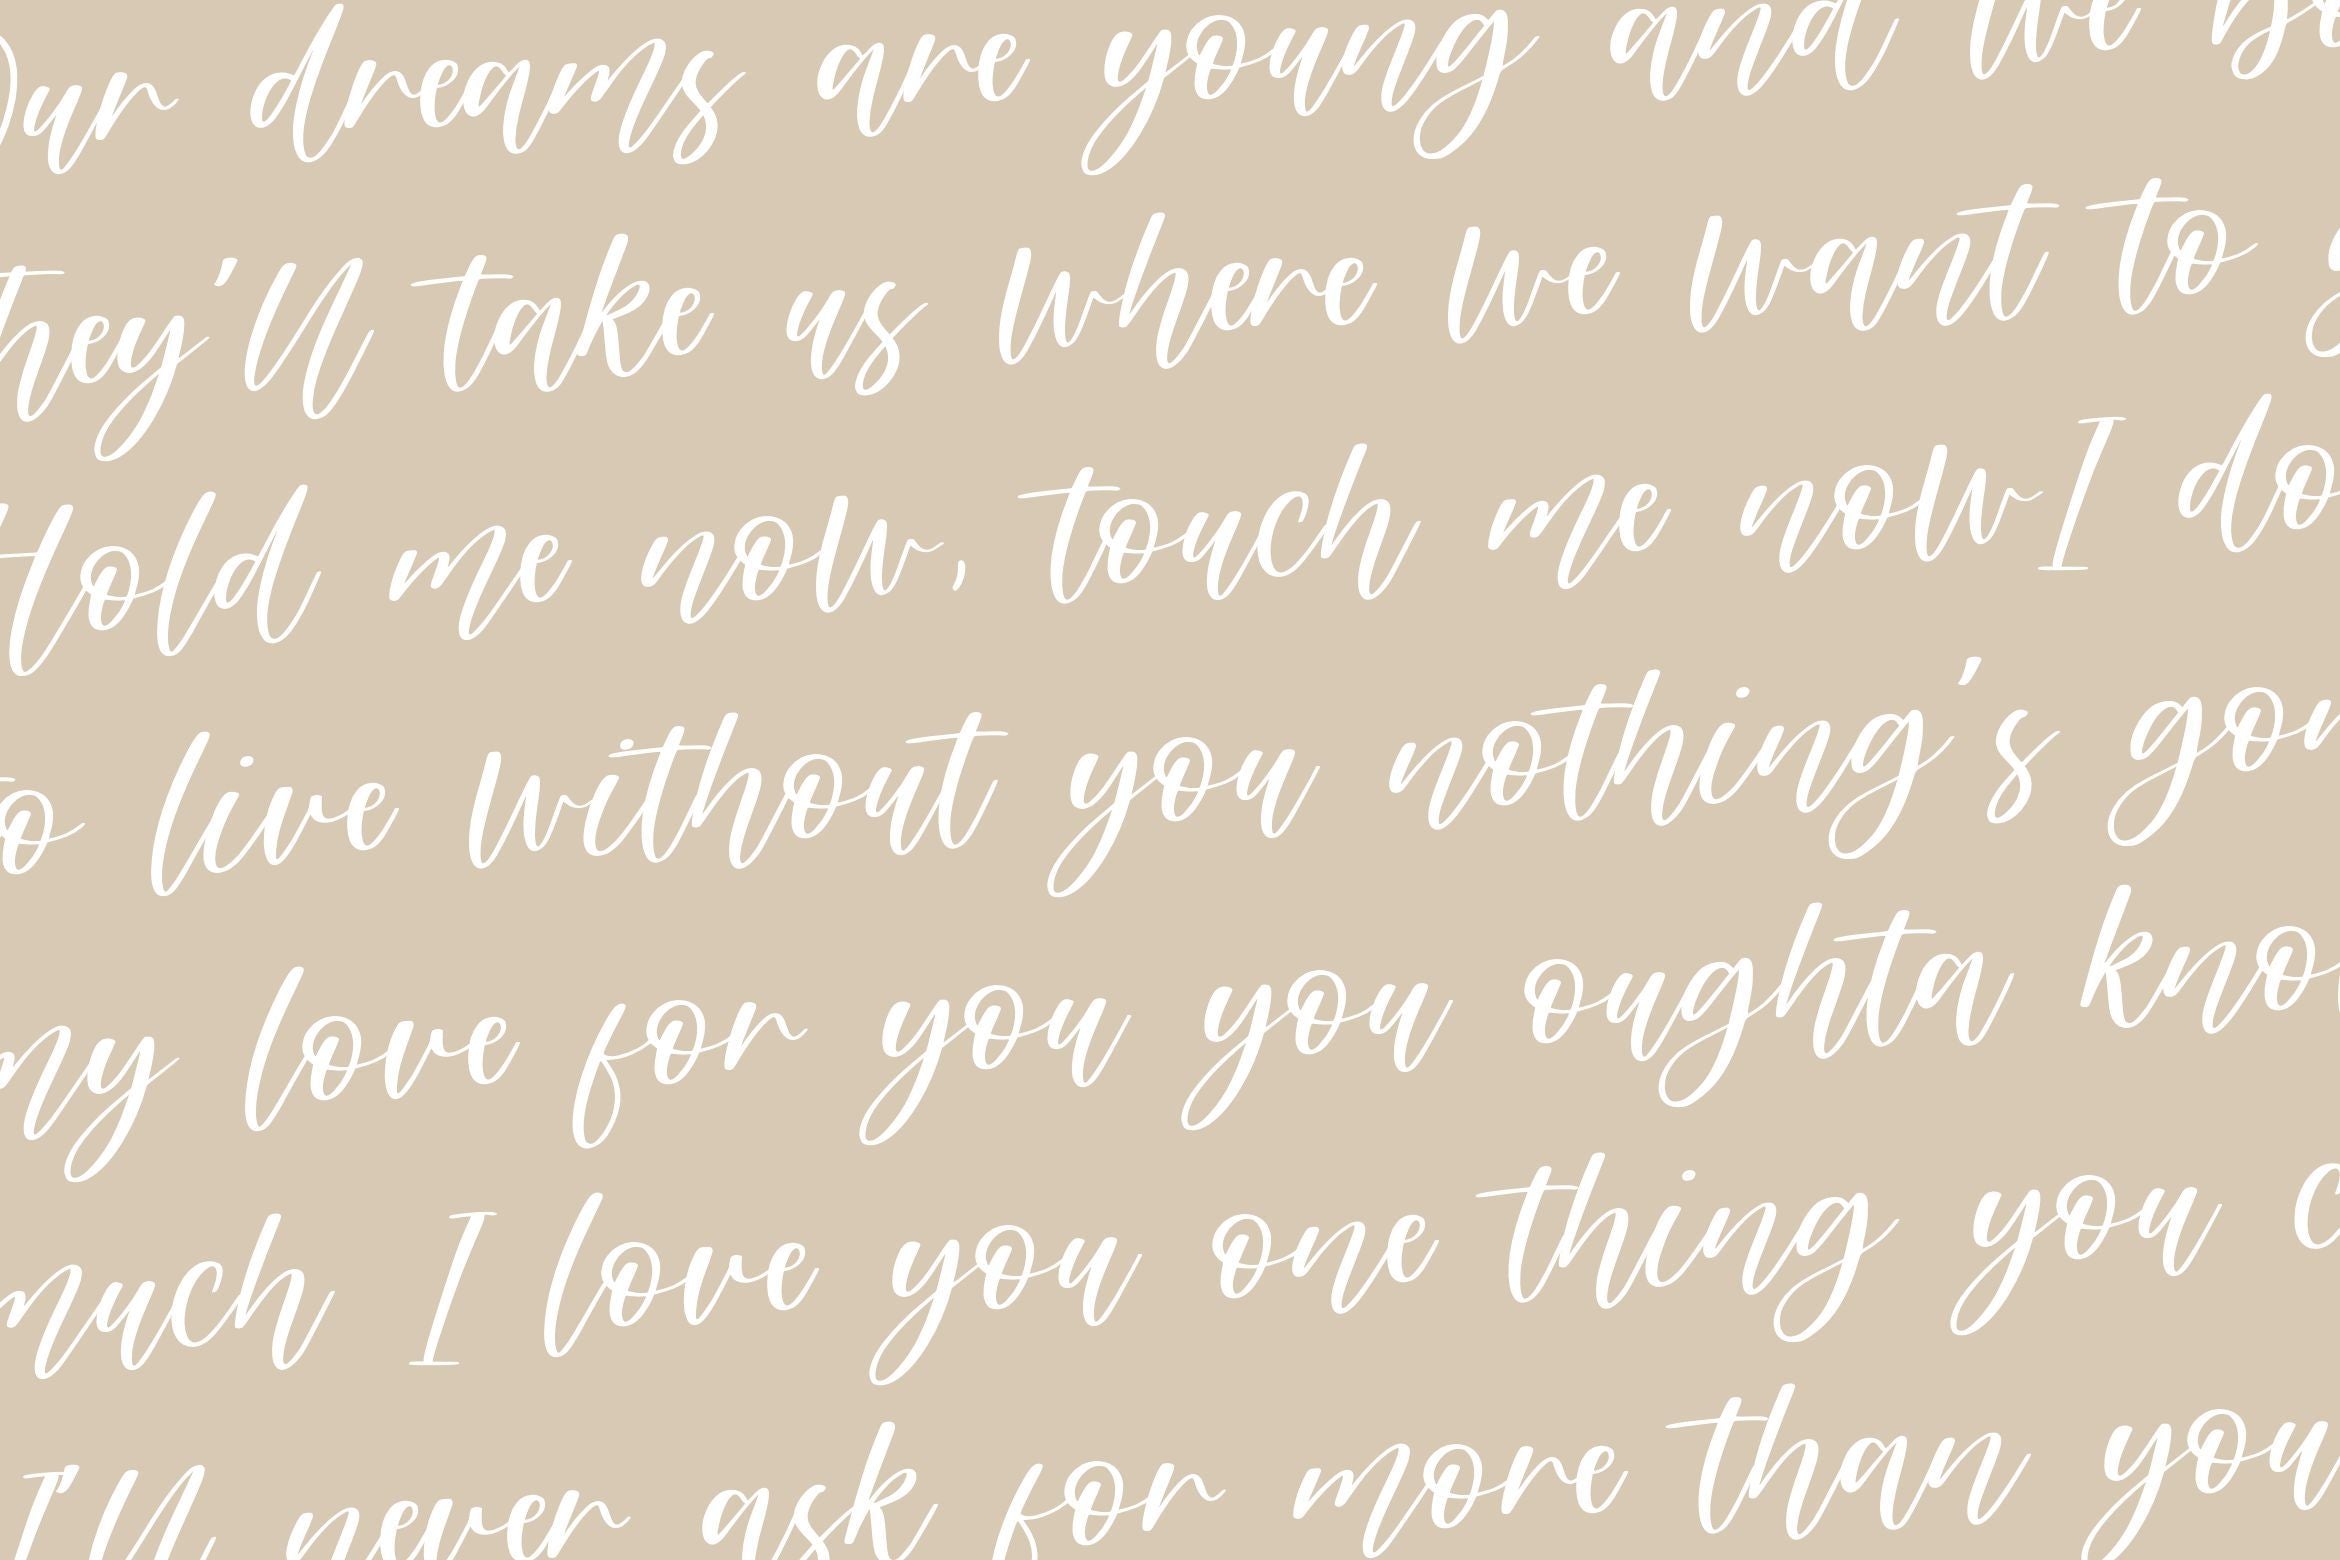 our dreams are young and we
they'll take us where we want to
Hold me now, touch me now I do
to live without you nothing's
my love for you you oughta know
much I love you one thing you
I'll never ask for more than you